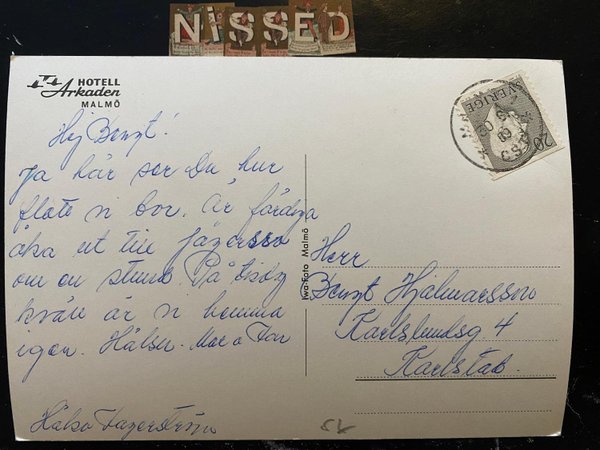 NiSSED
HOTELL
Arkaden
MALMÖ
Hej Bengt!
Ja här ser Du hur
flott vi bor. Är färdiga
åka ut till Jägersro
om en stund. På tisdag
kväll är vi hemma
igen. Hälsn. Mor o Far
Hälsa Fagerström
Iwa-Foto Malmö
Herr
Bengt Hjalmarsson
Karlslundsg 4
Karlstad.
SVERIGE
20